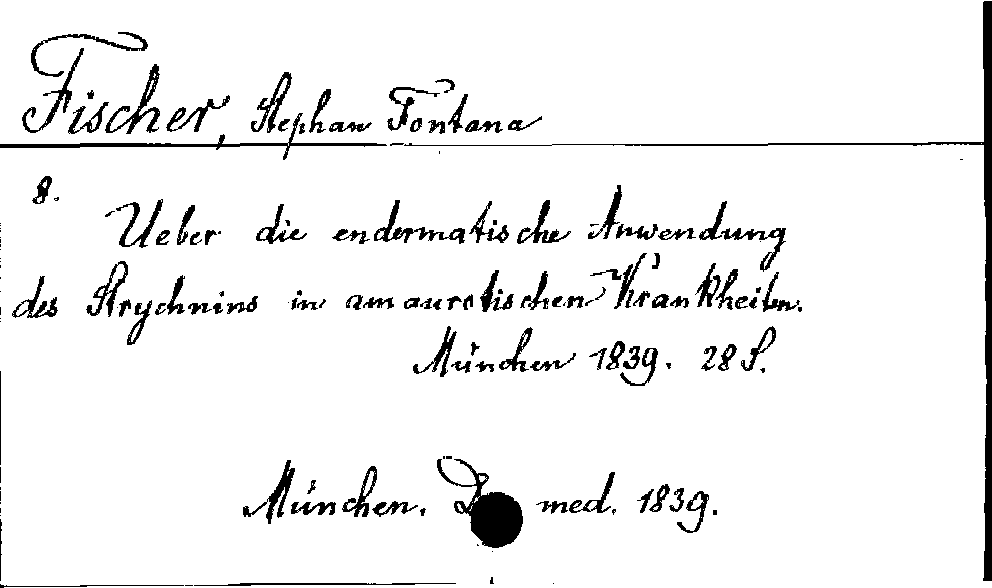 Fischer, Stephan Fontana
8.
Ueber die endermatische Anwendung
des Strychnins in amaurotischen Krankheiten.
München 1839. 28 S.
München. med. 1839.